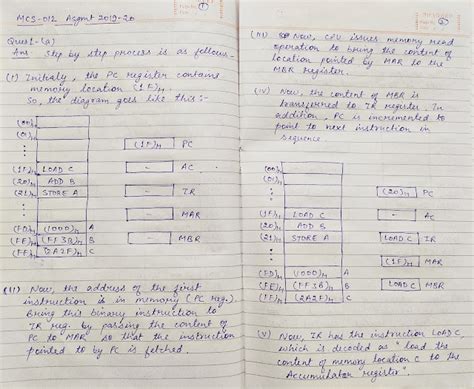 MCS-012 Asgmt 2019-20
Ques1-(a)
Ans Step by step process is as follows-
(i) Initialy, the PC register contains
memory location (1F)H.
So, the diagram goes like this:-
(00)H
(01)H
(1F)H LOAD C
(20)H ADD B
(21)H STORE A
(FD)H (1000)H A
(FE)H (FF3B)H B
(FF)H (2A2F)H C
(1F)H PC
- AC
- IR
- MAR
- MBR
(ii) Now, the address of the first
instruction is in memory (PC reg.)
Bring this binary instruction to
IR reg. by passing the content of
PC to "MAR" so that the instruction
pointed to by PC is fetched.
(iii) Now, CPU issues memory read
operation to bring the content of
location pointed by MAR to the
MBR register.
(iv) Now, the content of MBR is
transferred to IR register. In
addition, PC is incremented to
point to next instruction in
sequence.
(00)H
(01)H
(1F)H LOAD C
(20)H ADD B
(21)H STORE A
(FD)H (1000)H A
(FE)H (FF3B)H B
(FF)H (2A2F)H C
(20)H PC
- AC
LOAD C IR
(1F)H MAR
LOAD C MBR
(v) Now, IR has the instruction LOAD C,
which is decoded as "load the
content of memory location C to the
Accumulator register".